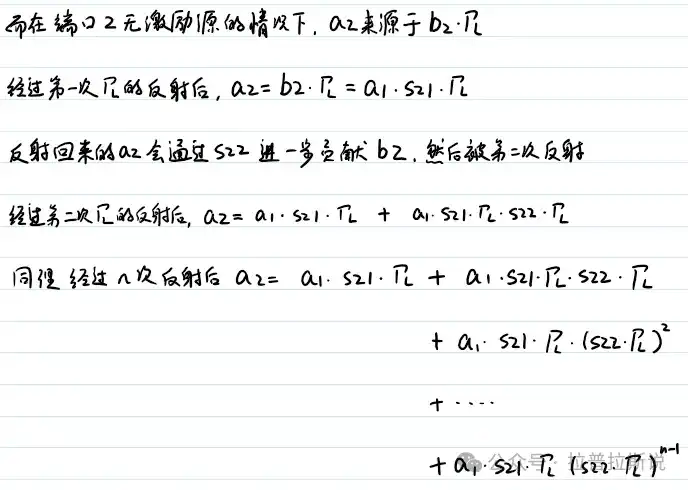 而在端口2无激励源的情况下, a2来源于b2·Γ_L
经过第一次Γ_L的反射后, a2=b2·Γ_L=a1·s21·Γ_L
反射回来的a2会通过s22进一步贡献b2, 然后被第二次反射
经过第二次Γ_L的反射后, a2= a1·s21·Γ_L + a1·s21·Γ_L·s22·Γ_L
同理 经过n次反射后 a2= a1·s21·Γ_L + a1·s21·Γ_L·s22·Γ_L
+ a1·s21·Γ_L·(s22·Γ_L)²
+ ····
+ a1·s21·Γ_L (s22·Γ_L)ⁿ⁻¹
公众号·拉普拉斯说